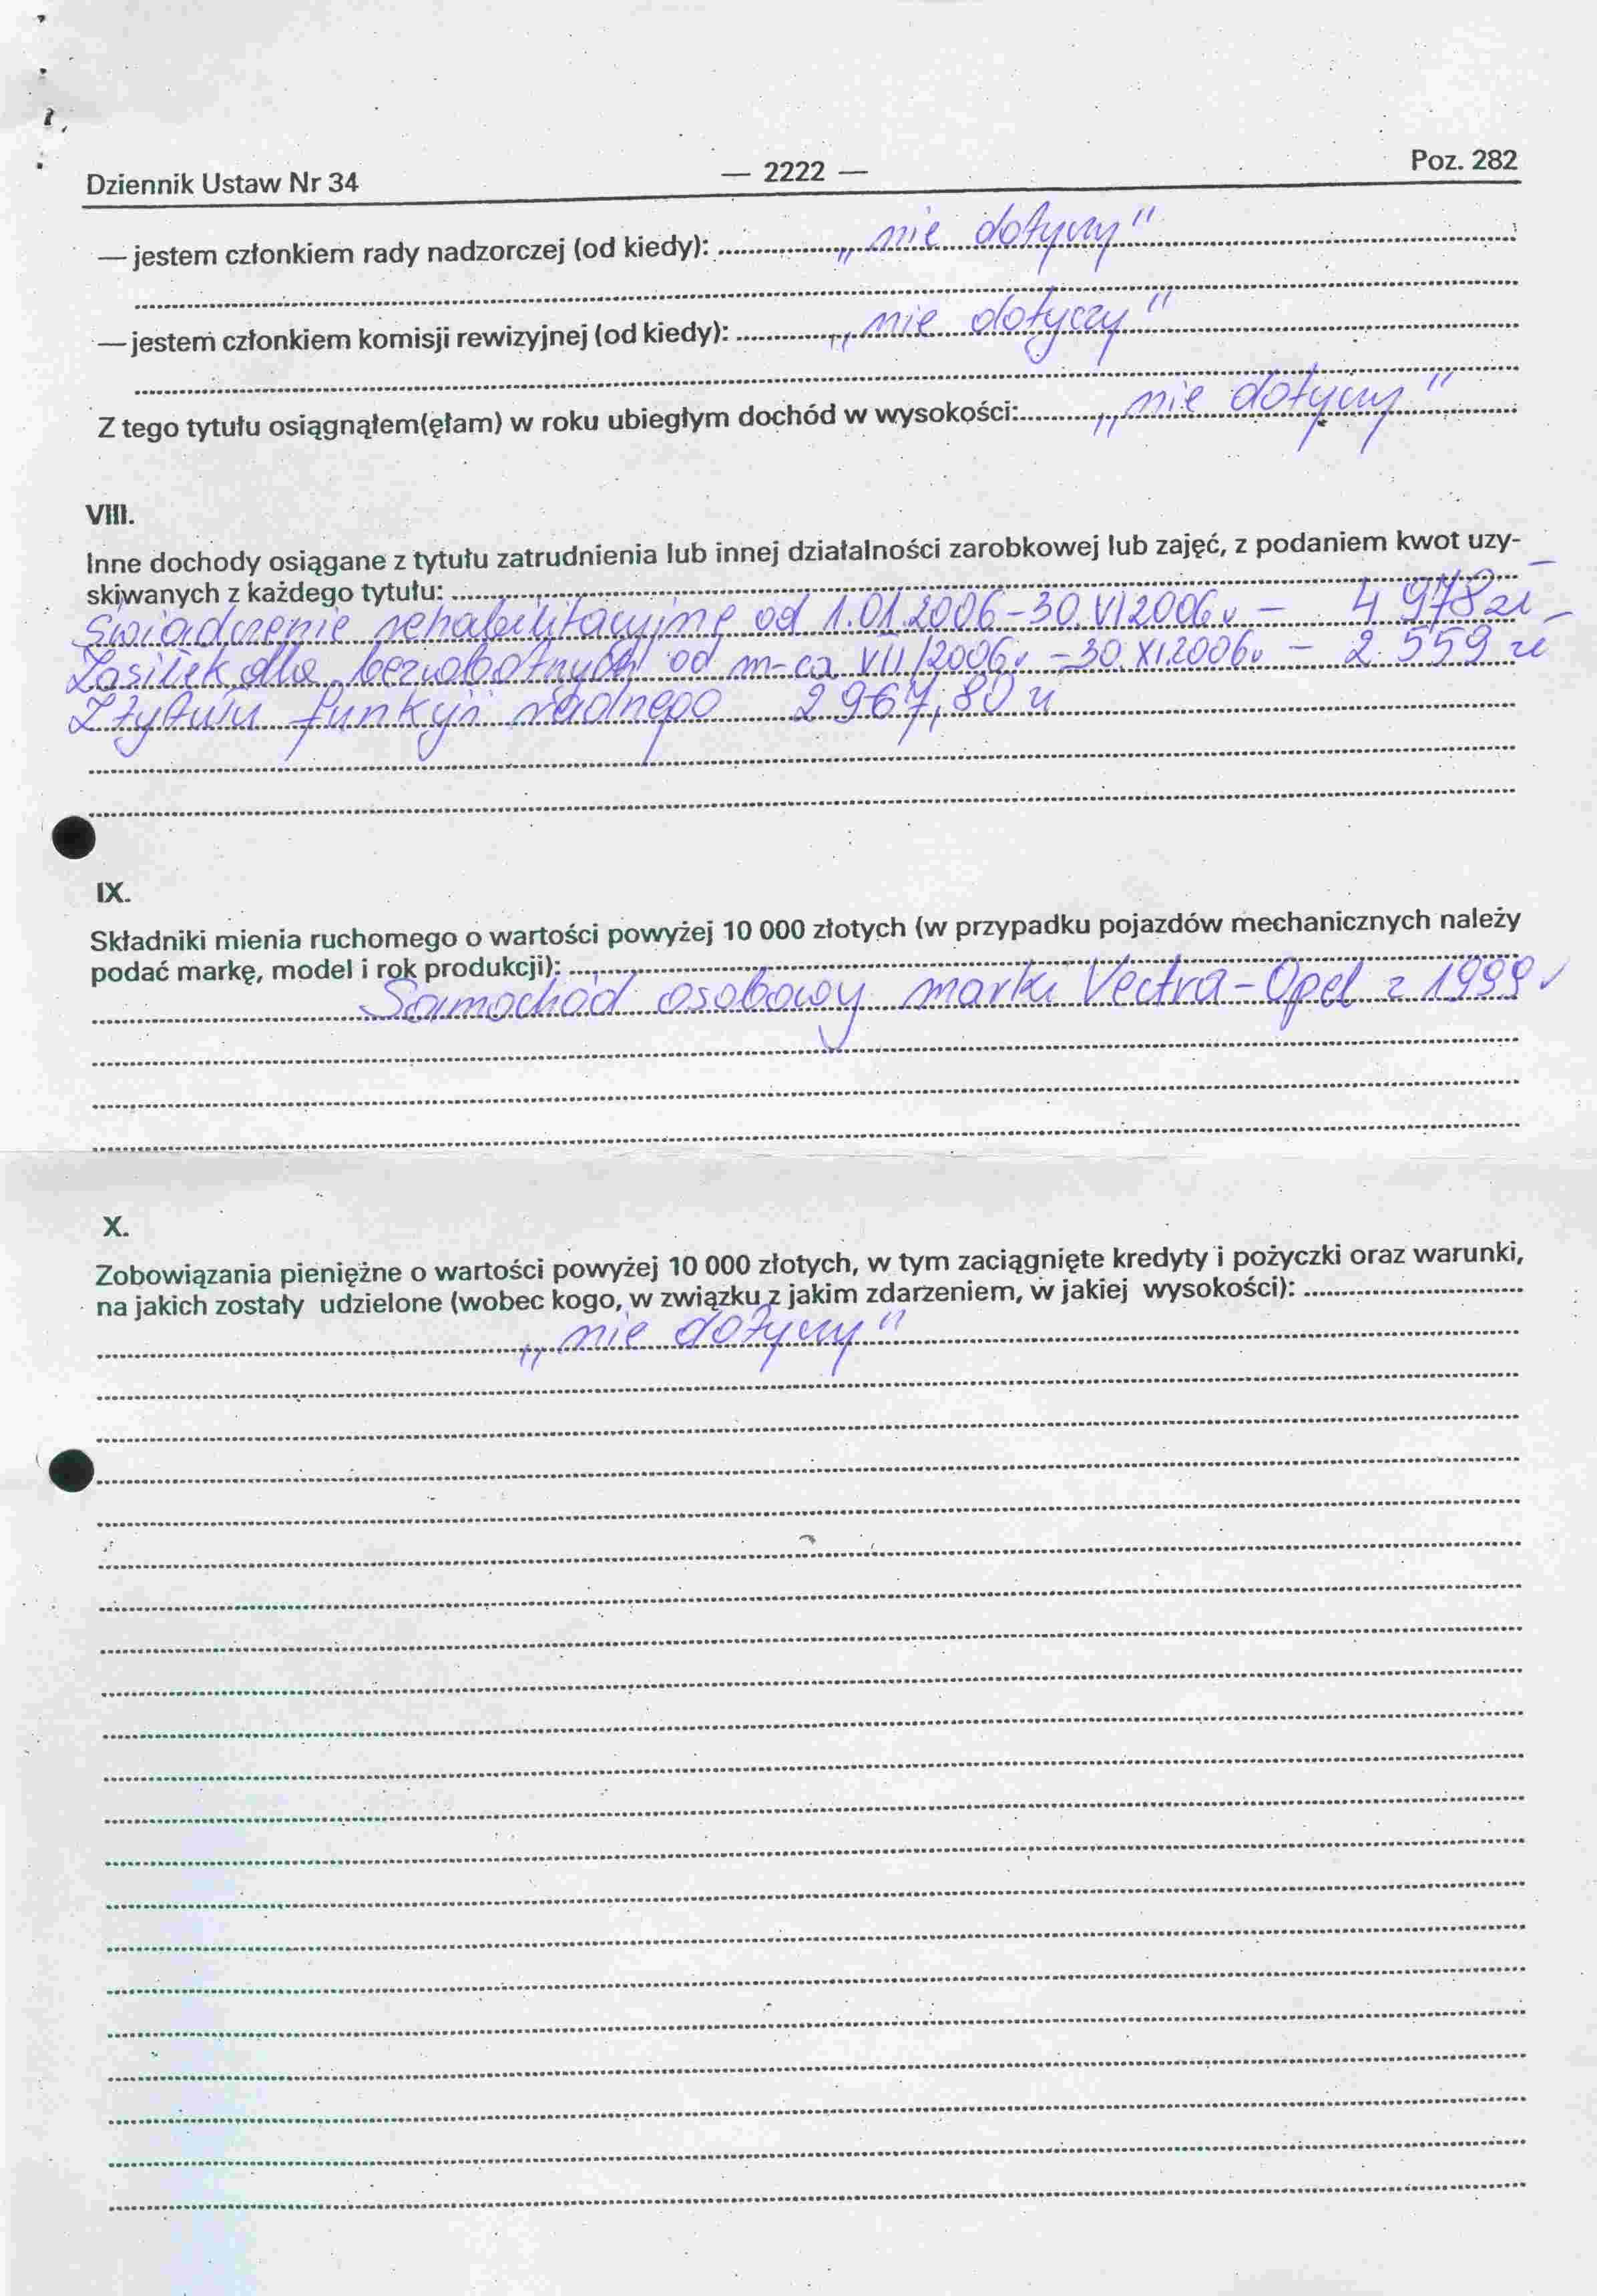 Dziennik Ustaw Nr 34 — 2222 — Poz. 282
— jestem członkiem rady nadzorczej (od kiedy): „nie dotyczy"
— jestem członkiem komisji rewizyjnej (od kiedy): „nie dotyczy"
Z tego tytułu osiągnąłem(ęłam) w roku ubiegłym dochód w wysokości: „nie dotyczy"
VIII.
Inne dochody osiągane z tytułu zatrudnienia lub innej działalności zarobkowej lub zajęć, z podaniem kwot uzy-
skiwanych z każdego tytułu:
Świadczenie rehabilitacyjne od 1.01.2006-30.VI2006r - 4 978 zł -
Zasiłek dla bezrobotnych od m-ca VII/2006r - 30.XI.2006r - 2.559 zł
Z tytułu funkcji radnego 2967,80 zł
IX.
Składniki mienia ruchomego o wartości powyżej 10 000 złotych (w przypadku pojazdów mechanicznych należy
podać markę, model i rok produkcji):
Samochód osobowy marki Vectra-Opel z 1999 r
X.
Zobowiązania pieniężne o wartości powyżej 10 000 złotych, w tym zaciągnięte kredyty i pożyczki oraz warunki,
na jakich zostały udzielone (wobec kogo, w związku z jakim zdarzeniem, w jakiej wysokości):
„nie dotyczy"